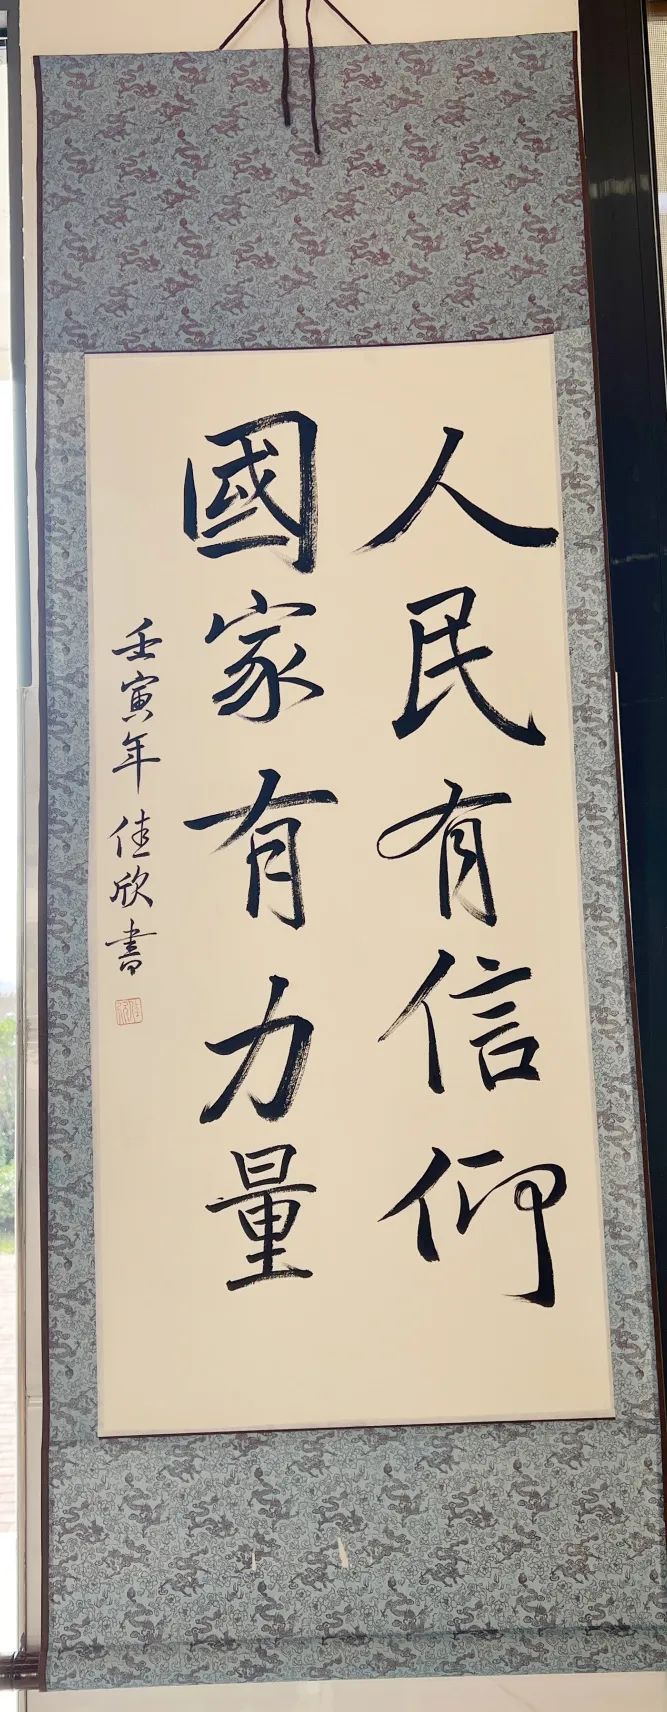 人民有信仰
國家有力量
壬寅年佳欣書